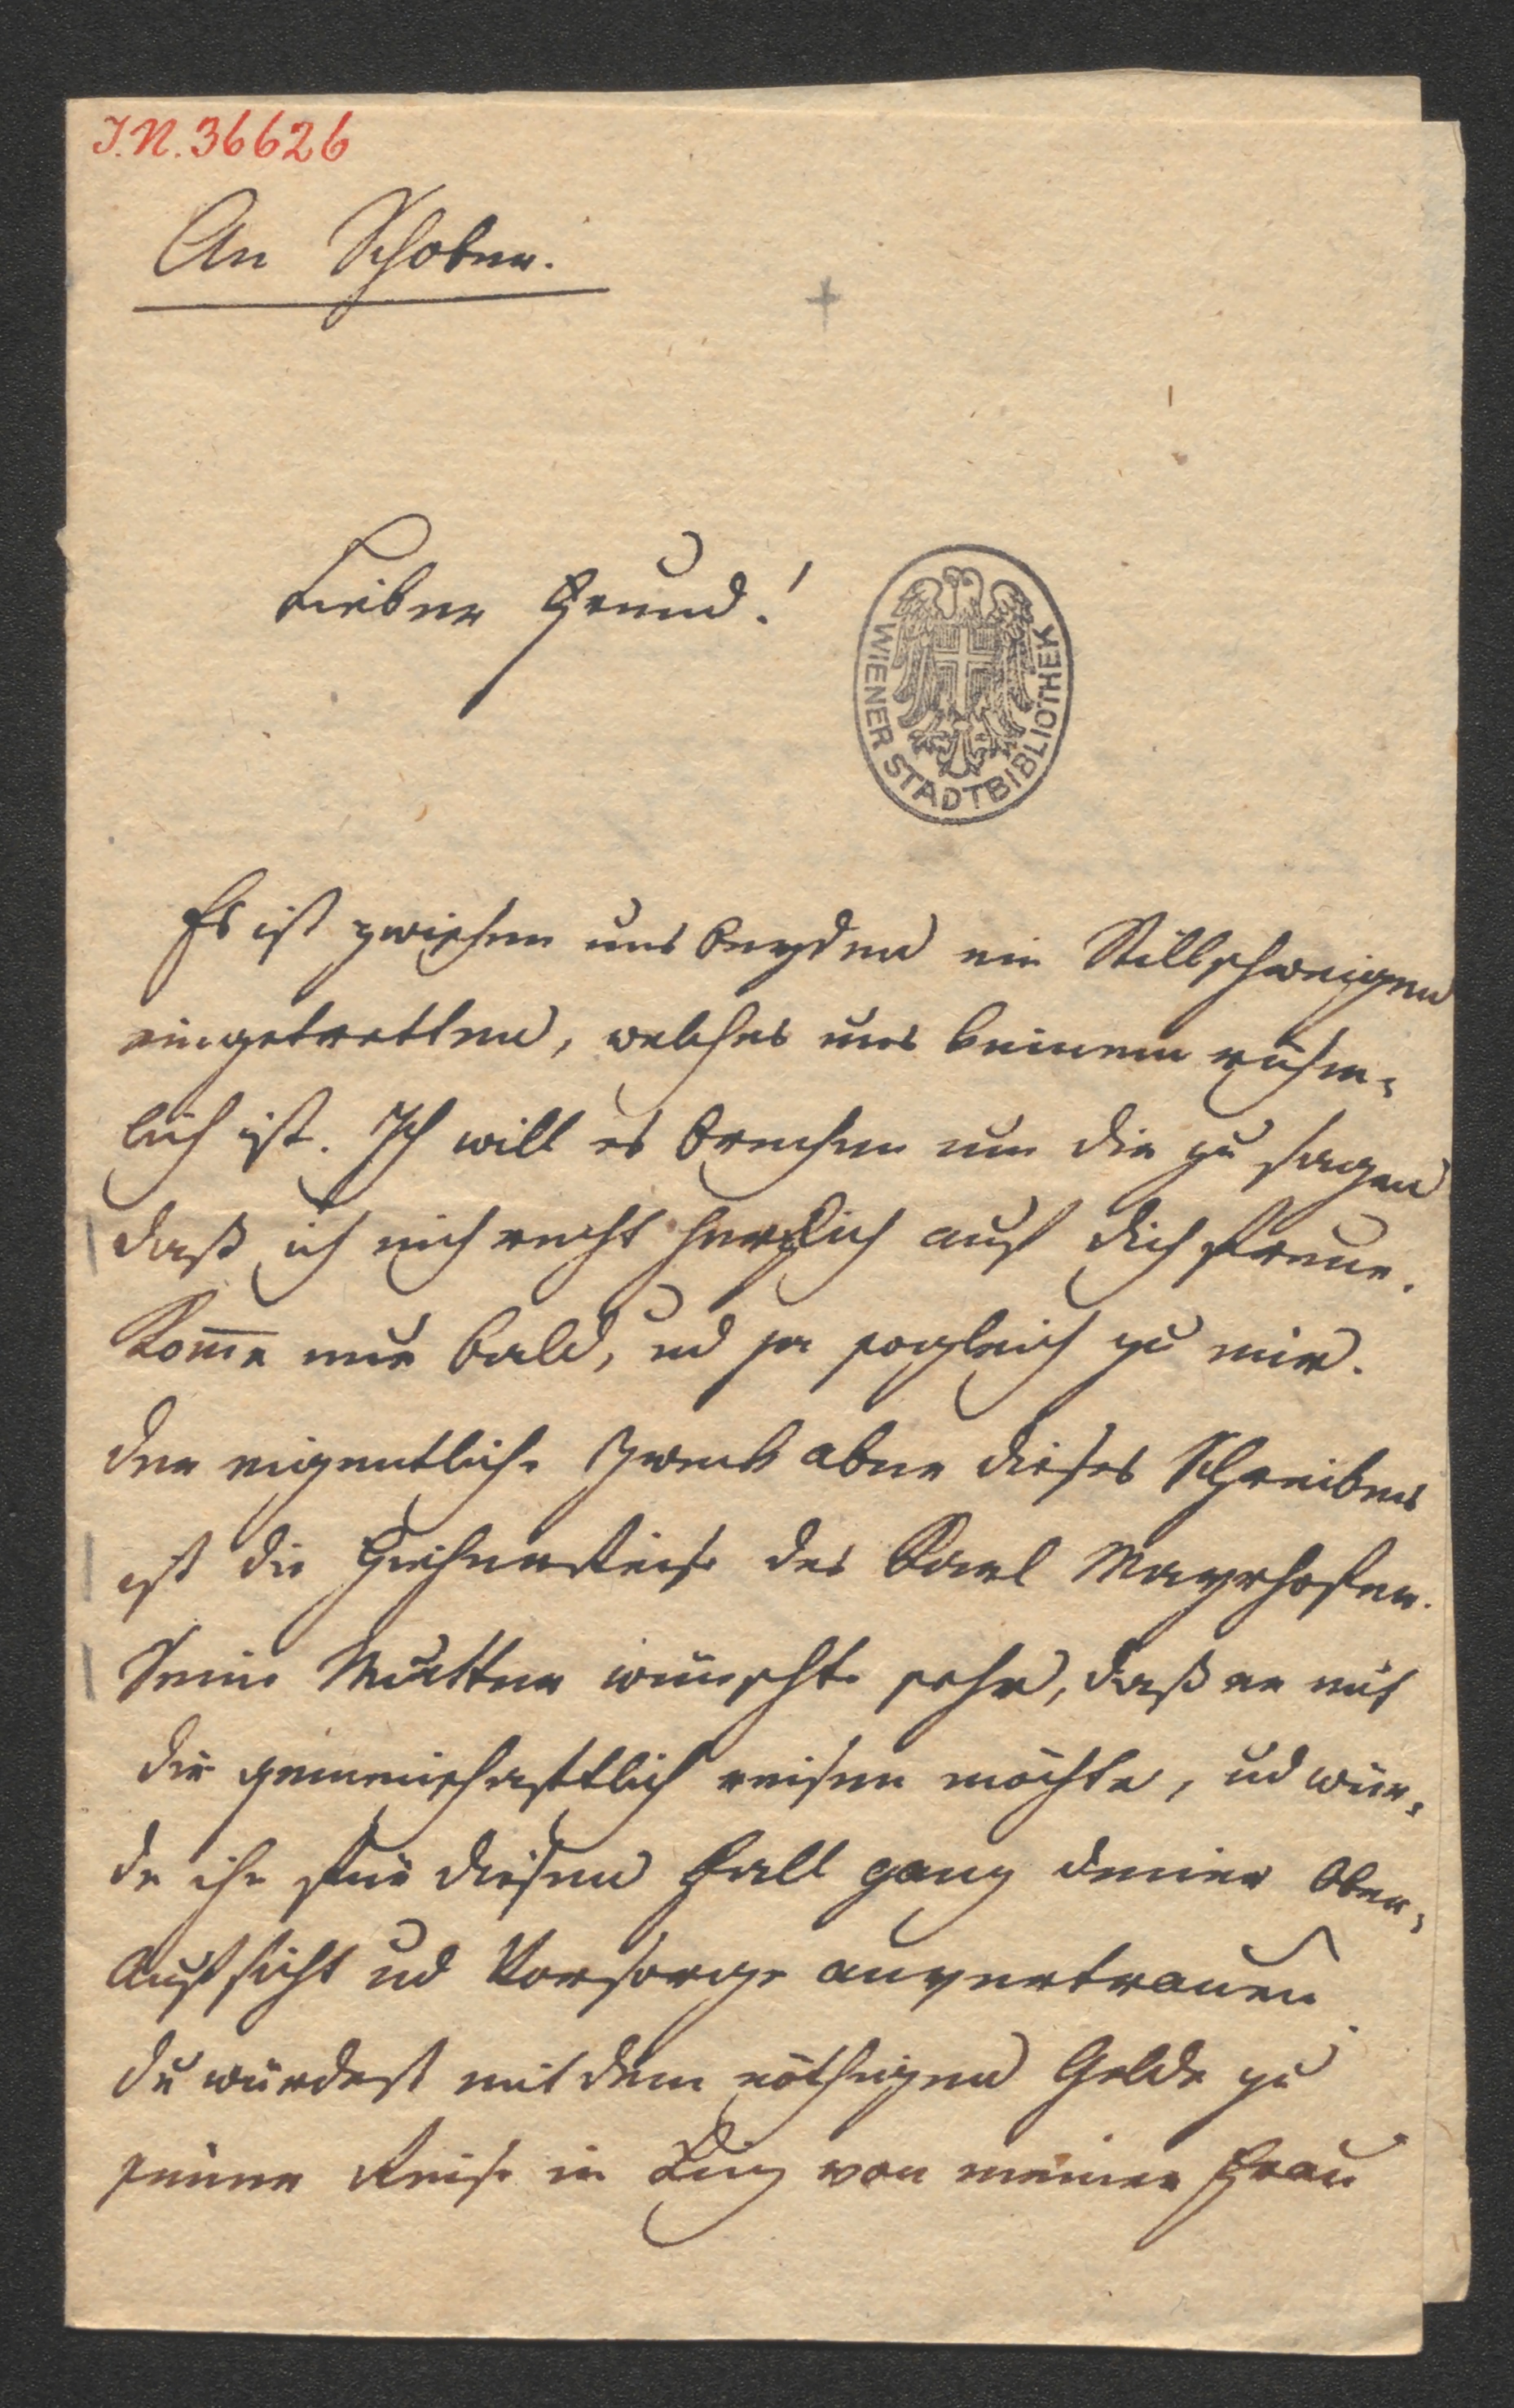 I.N. 36626
An Schober.
Lieber Freund!
WIENER STADTBIBLIOTHEK
Es ist zwischen uns beyden ein Stillschweigen
eingetretten, welches uns keinem rühm-
lich ist. Ich will es brechen um dir zu sagen
daß ich mich recht herzlich auf dich freue.
Kom̄e nur bald, ud ja sogleich zu mir.
Der eigentliche Zweck aber dieses Schreibens
ist die Hieherreise des Karl Mayrhofer.
Seine Mutter wünschte sehr, daß er mit
dir gemeinschaftlich reisen möchte, ud wür-
de ihn für diesen Fall ganz deiner Ober-
Aufsicht ud Vorsorge anvertrauen.
Du würdest mit dem nöthigen Gelde zu
seiner Reise in Linz von meiner Frau